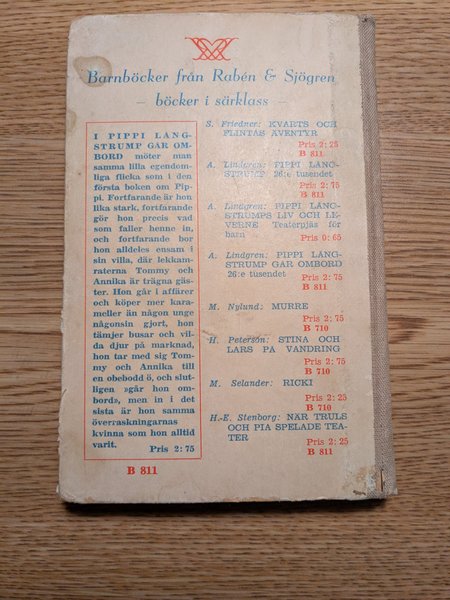 Barnböcker från Rabén & Sjögren
– böcker i särklass –
I PIPPI LÅNG-
STRUMP GÅR OM-
BORD möter man
samma lilla egendom-
liga flicka som i den
första boken om Pip-
pi. Fortfarande är hon
lika stark, fortfarande
gör hon precis vad
som faller henne in,
och fortfarande bor
hon alldeles ensam i
sin villa, där lekkam-
raterna Tommy och
Annika är trägna gäs-
ter. Hon går i affärer
och köper mer kara-
meller än någon unge
någonsin gjort, hon
tämjer busar och vil-
da djur på marknad,
hon tar med sig Tom-
my och Annika till
en obebodd ö, och slut-
ligen »går hon om-
bord», men in i det
sista är hon samma
överraskningarnas
kvinna som hon alltid
varit.
Pris 2: 75
B 811
S. Friedner: KVARTS OCH
FLINTAS ÄVENTYR
Pris 2: 25
B 811
A. Lindgren: PIPPI LÅNG-
STRUMP 26:e tusendet
Pris 2: 75
B 811
A. Lindgren: PIPPI LÅNG-
STRUMPS LIV OCH LE-
VERNE Teaterpjäs för
barn
Pris 0: 65
A. Lindgren: PIPPI LÅNG-
STRUMP GÅR OMBORD
26:e tusendet
Pris 2: 75
B 811
M. Nylund: MURRE
Pris 2: 75
B 710
H. Peterson: STINA OCH
LARS PÅ VANDRING
Pris 2: 75
B 710
M. Selander: RICKI
Pris 2: 25
B 710
H.-E. Stenborg: NÄR TRULS
OCH PIA SPELADE TEA-
TER
Pris 2: 25
B 811